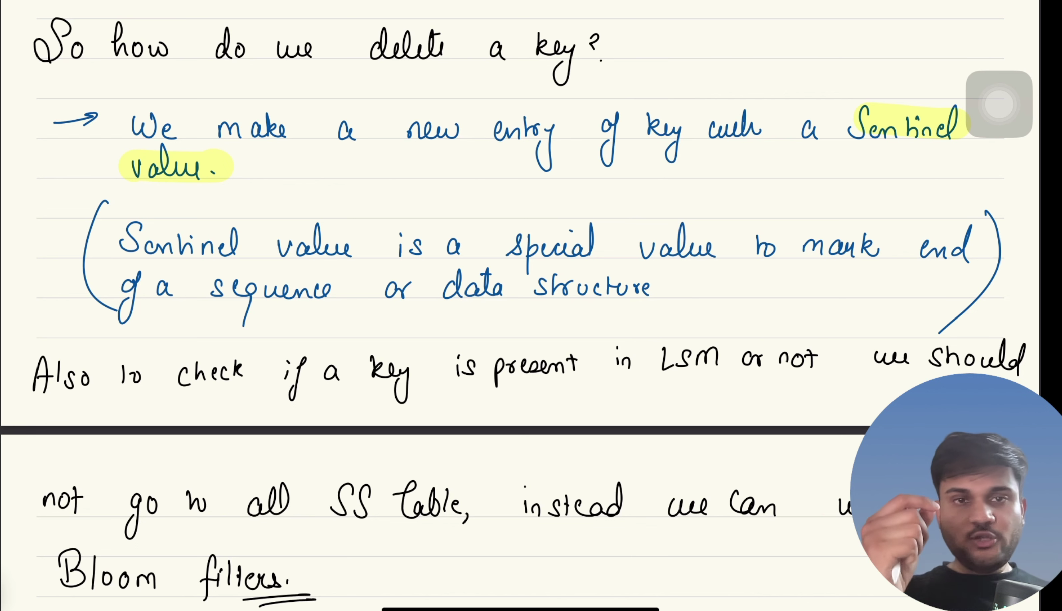 So how do we delete a key?
→ We make a new entry of key with a Sentinel
value.
(Sentinel value is a special value to mark end
of a sequence or data structure)
Also to check if a key is present in LSM or not we should
not go to all SS Table, instead we can
Bloom filters.